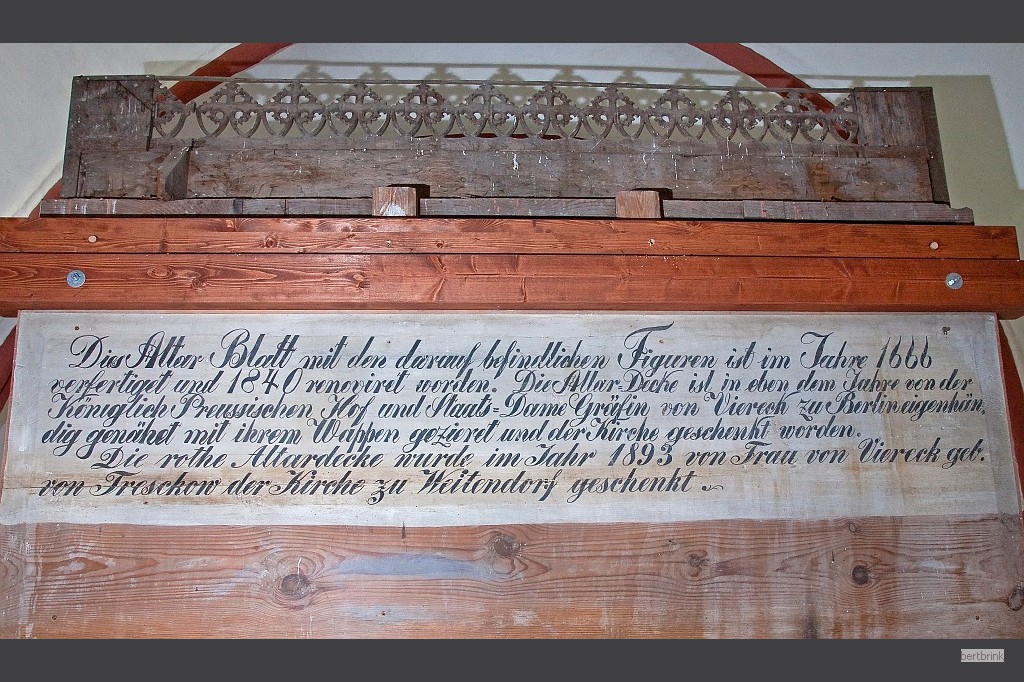 Das Altar Blatt mit den darauf befindlichen Figuren ist im Jahre 1666
verfertiget und 1840 renoviret worden. Die Altar=Decke ist in eben dem Jahre von der
Königlich Preussischen Hof und Staats=Dame Gräfin von Viereck zu Berlin eigenhän,
dig genähet mit ihrem Wappen gezieret und der Kirche geschenkt worden.
Die rothe Altardecke wurde im Jahr 1893 von Frau von Viereck geb.
von Tresckow der Kirche zu Weitendorf geschenkt
bertbrink